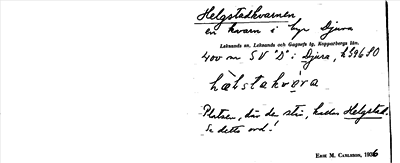 Helgstadkvarnen
en kvarn i byn Djura
Leksands sn. Leksands och Gagnefs tg, Kopparbergs län.
400 m SV "D" i Djura,
hɛlstakvára
Platsen, där den står, kallas Helgstad.
Se detta ord!
ERIK M. CARLSSON, 1936